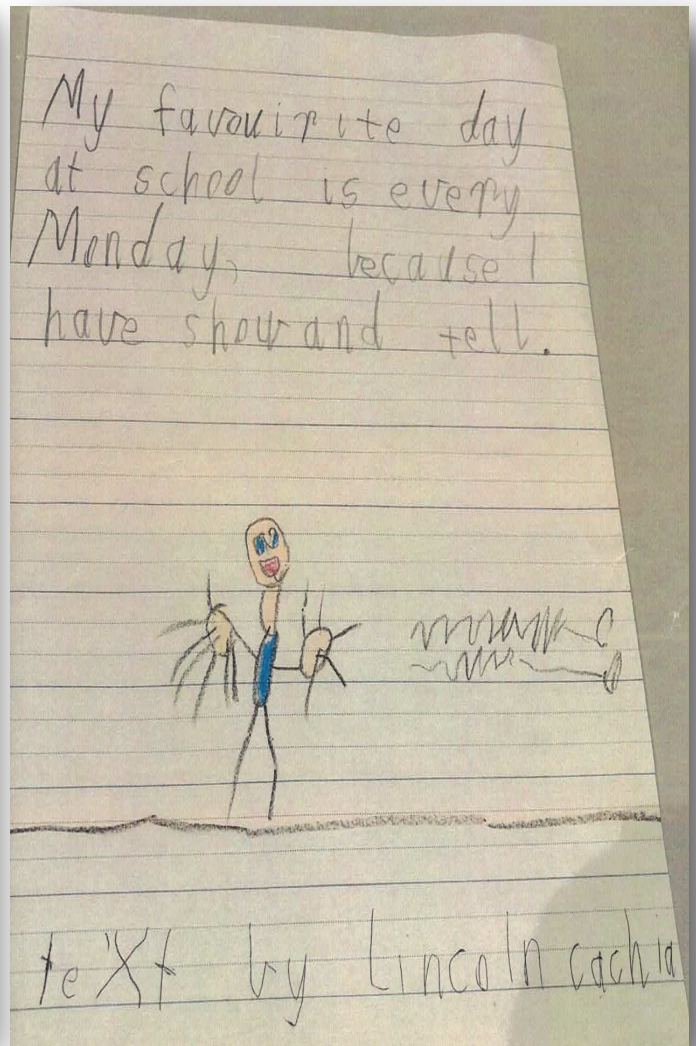 My favouirite day
at school is every
Monday, because I
have show and tell.
teXt by Lincoln cachia